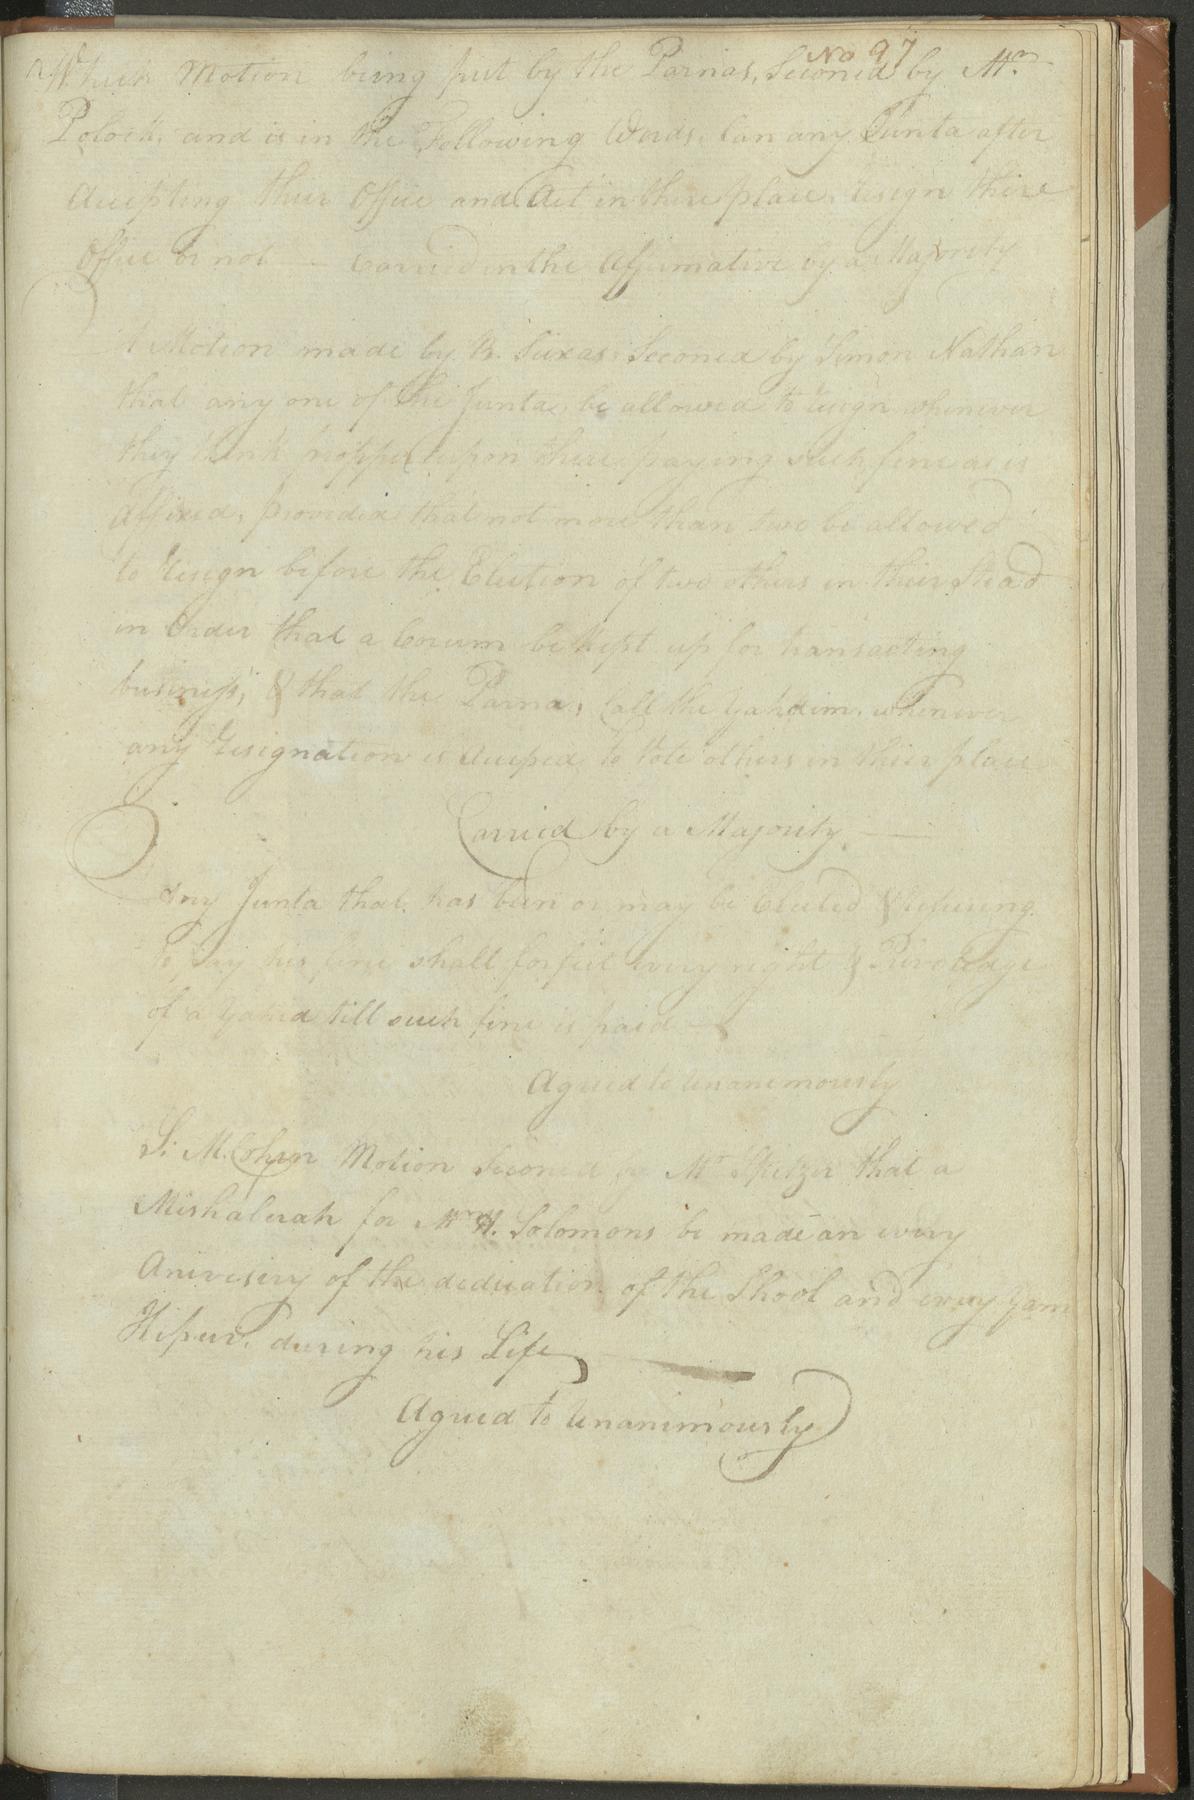 No 97
Which Motion being put by the Parnas, Seconed by Mr.
Polock, and is in the Following Words, Can any Junta after
Accepting thier Office and Act in there place, resign there
Office or not — Carried in the Affirmative by a Majority
A Motion made by B. Sixas, Seconed by Simon Nathan
that any one of the Junta, be allowed to resign whenever
they think propper upon there paying such fine as is
Affixed, provided that not more than two be allowed
to resign before the Election of two others in thier Stead
in Order that a Corum be kept up for transacting
business, & that the Parnas, Call the Yahidim, whenever
any resignation is accepted to Vote others in thier place
Carried by a Majority —
Any Junta that has been or may be Elected & refusing
to pay his fine shall forfeit every right & Priveleage
of a Yahid till such fine is paid —
Agreed to Unanimously
S. M. Cohen Motion Seconed by Mr Spitzer that a
Mishaberah for Mr H. Solomons be made an every
Aniversiry of the dedication of the Shool and every Yam
Kipur, during his Life —
Agreed to Unanimously